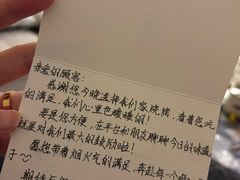 亲爱的顾客:
感谢您今晚选择我们家烧烤,看着您吃
的满足,我们心里也暖暖的!
要是您方便,在平台和朋友聊聊今日的味蕾
就是对我们最大的鼓励啦!
愿您带着烟火气的满足,奔赴每个
于♡